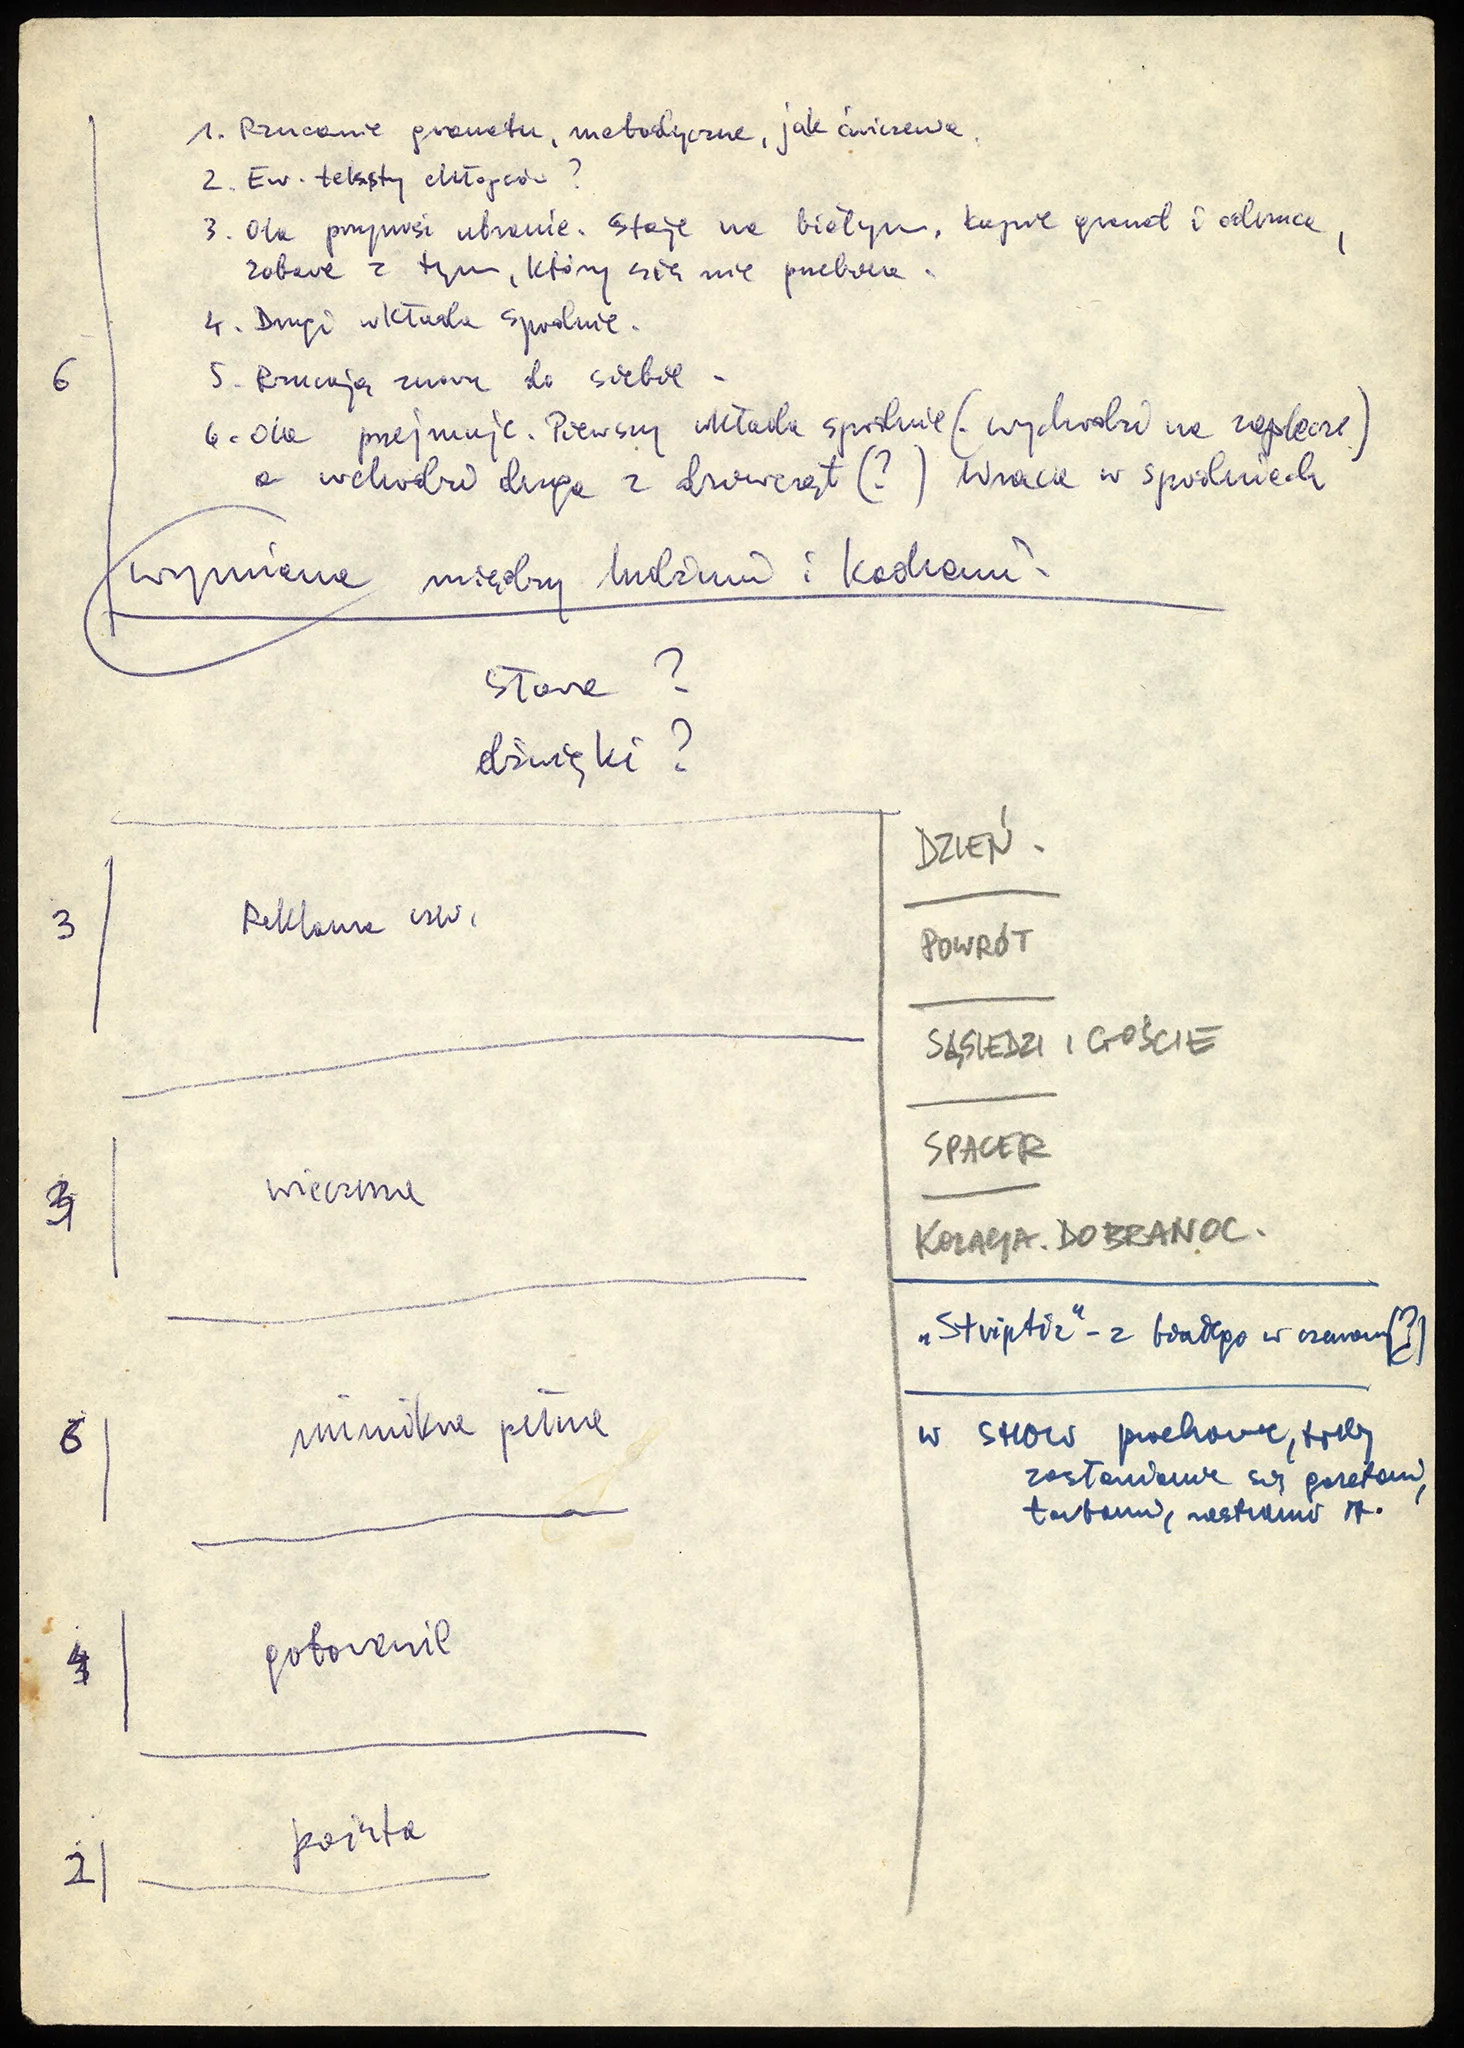 1. Rzucanie granatu, metodyczne, jak ćwiczenie.
2. Ew. teksty chłopców?
3. Ola przynosi ubranie. Staje na białym, łapie granat i odrzuca,
zabawa z tym, który się nie przebiera.
4. Drugi wkłada spodnie.
5. Rzucają znowu do siebie.
6
6. Ola przejmuje. Pierwszy wkłada spodnie (wychodzi na zaplecze)
a wchodzi druga z dziewcząt (?) wraca w spodniach
wymiana między ludźmi i kadrami.
słowa ?
dźwięki ?
3
Reklama
wieczorne
6
mimikra pełna
gotowanie
2
pointa
DZIEŃ.
POWRÓT
SĄSIEDZI I GOŚCIE
SPACER
KOLACJA. DOBRANOC.
„Striptiz" - z białego w czarnym (?)
w SHOW
zasłanianie się gazetami,
torbami,